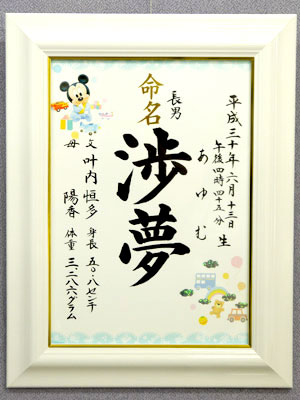 平成三十年六月十三日
午後四時四十五分 生
あゆむ
長男
命名
渉夢
父 叶内恒多 身長 五〇.八センチ
母 陽香 体重 三.二八六グラム